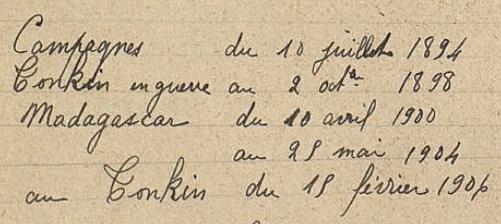 Campagnes du 10 juillet 1894
Tonkin en guerre au 2 octbre 1898
Madagascar du 10 avril 1900
au 25 mai 1904
au Tonkin du 15 février 1906